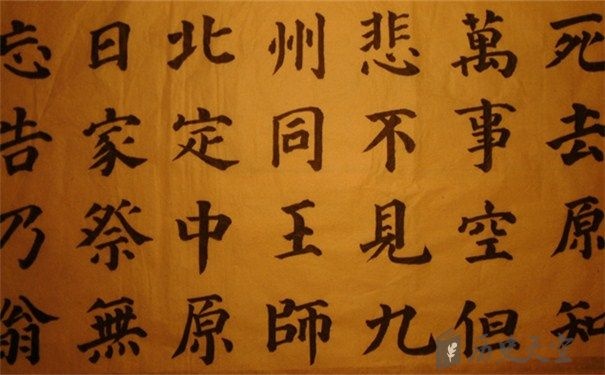 死去原知
萬事空但
悲不見九
州同王師
北定中原
日家祭無
忘告乃翁